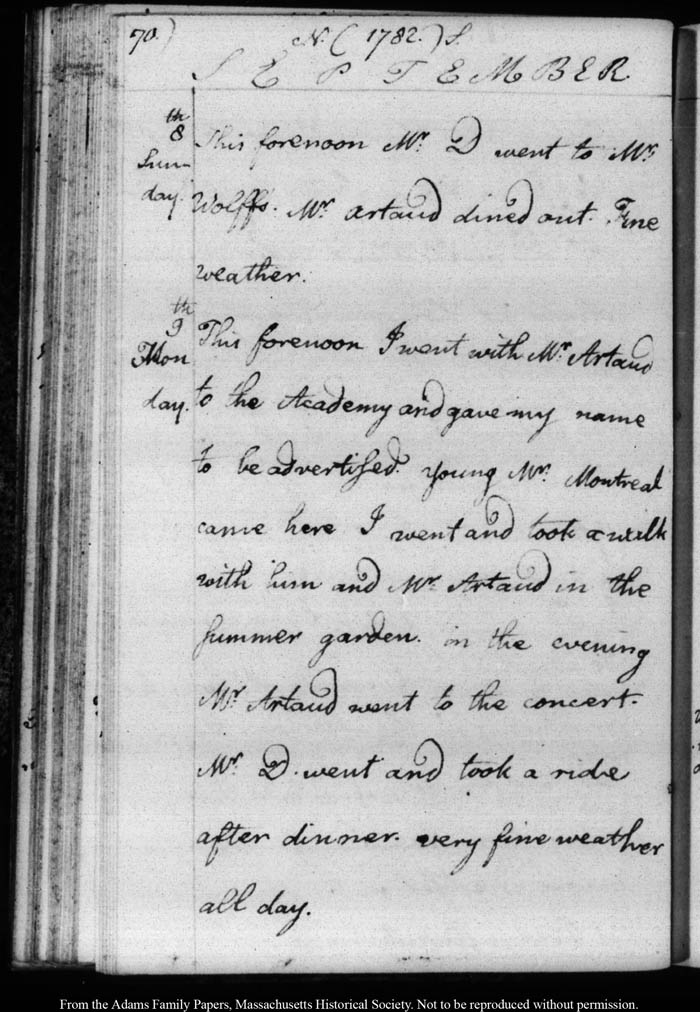 70.)
N. ( 1782. ) S.
S E P T E M B E R
th
8
Sun-
day.
This forenoon Mr. D went to Mr.
Wolff's. Mr. Artaud dined out. Fine
weather.
th
9
Mon
day.
This forenoon I went with Mr. Artaud
to the Academy and gave my name
to be advertised. Young Mr. Montreal
came here I went and took a walk
with him and Mr. Artaud in the
summer garden. in the evening
Mr. Artaud went to the concert.
Mr. D. went and took a ride
after dinner. very fine weather
all day.
From the Adams Family Papers, Massachusetts Historical Society. Not to be reproduced without permission.